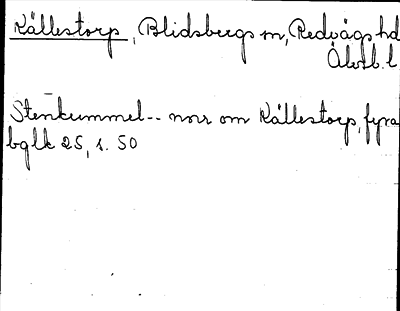 Källestorp, Blidsbergs sn, Redvägs hd
Älvsb. l.
Stenkummel -- norr om Källestorp, fyra
bglk 25, s. 50